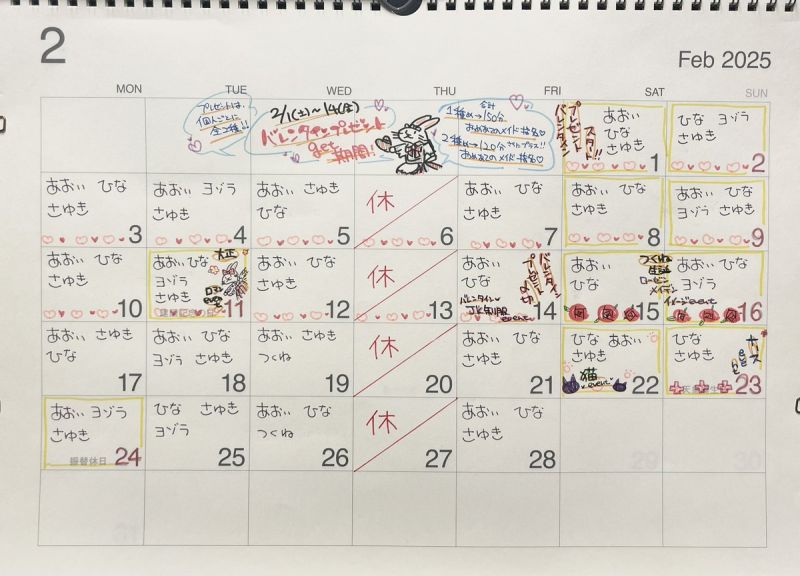 2
Feb 2025
MON TUE WED THU FRI SAT SUN
プレゼントは、
個人ごとに
全2種!!
2/1(土)～14(金)
バレンタインプレゼント
get期間!
合計
1種め→150分
おめあてのメイド指名
2種め→120分さらにプラス!!
おめあてのメイド指名
バレンタイン
プレゼント
スタート!!
あおい
ひな
さゆき
1
ひな ヨゾラ
さゆき
2
あおい ひな
さゆき
3
あおい ヨゾラ
さゆき
4
あおい さゆき
ひな
5
休
6
あおい ひな
さゆき
7
あおい ひな
さゆき
8
あおい ひな
ヨゾラ さゆき
9
あおい ひな
さゆき
10
あおい ひな
ヨゾラ
さゆき
大正
建国記念の日
11
あおい ひな
さゆき
12
休
13
あおい
ひな
さゆき
バレンタイン
プレゼント
バレンタイン
JK制服
event
14
あおい
ひな
つくね
生誕
ローゼン
メイデン
15
あおい ひな
ヨゾラ さゆき
イメージevent
16
あおい さゆき
ひな
17
あおい ひな
ヨゾラ さゆき
18
あおい さゆき
つくね
19
休
20
あおい ひな
さゆき
21
ひな あおい
さゆき
猫
event
22
ひな
さゆき
ナース
event
天皇誕生日
23
あおい ヨゾラ
さゆき
振替休日
24
ひな さゆき
ヨゾラ
25
あおい ひな
つくね
26
休
27
あおい ひな
さゆき
28